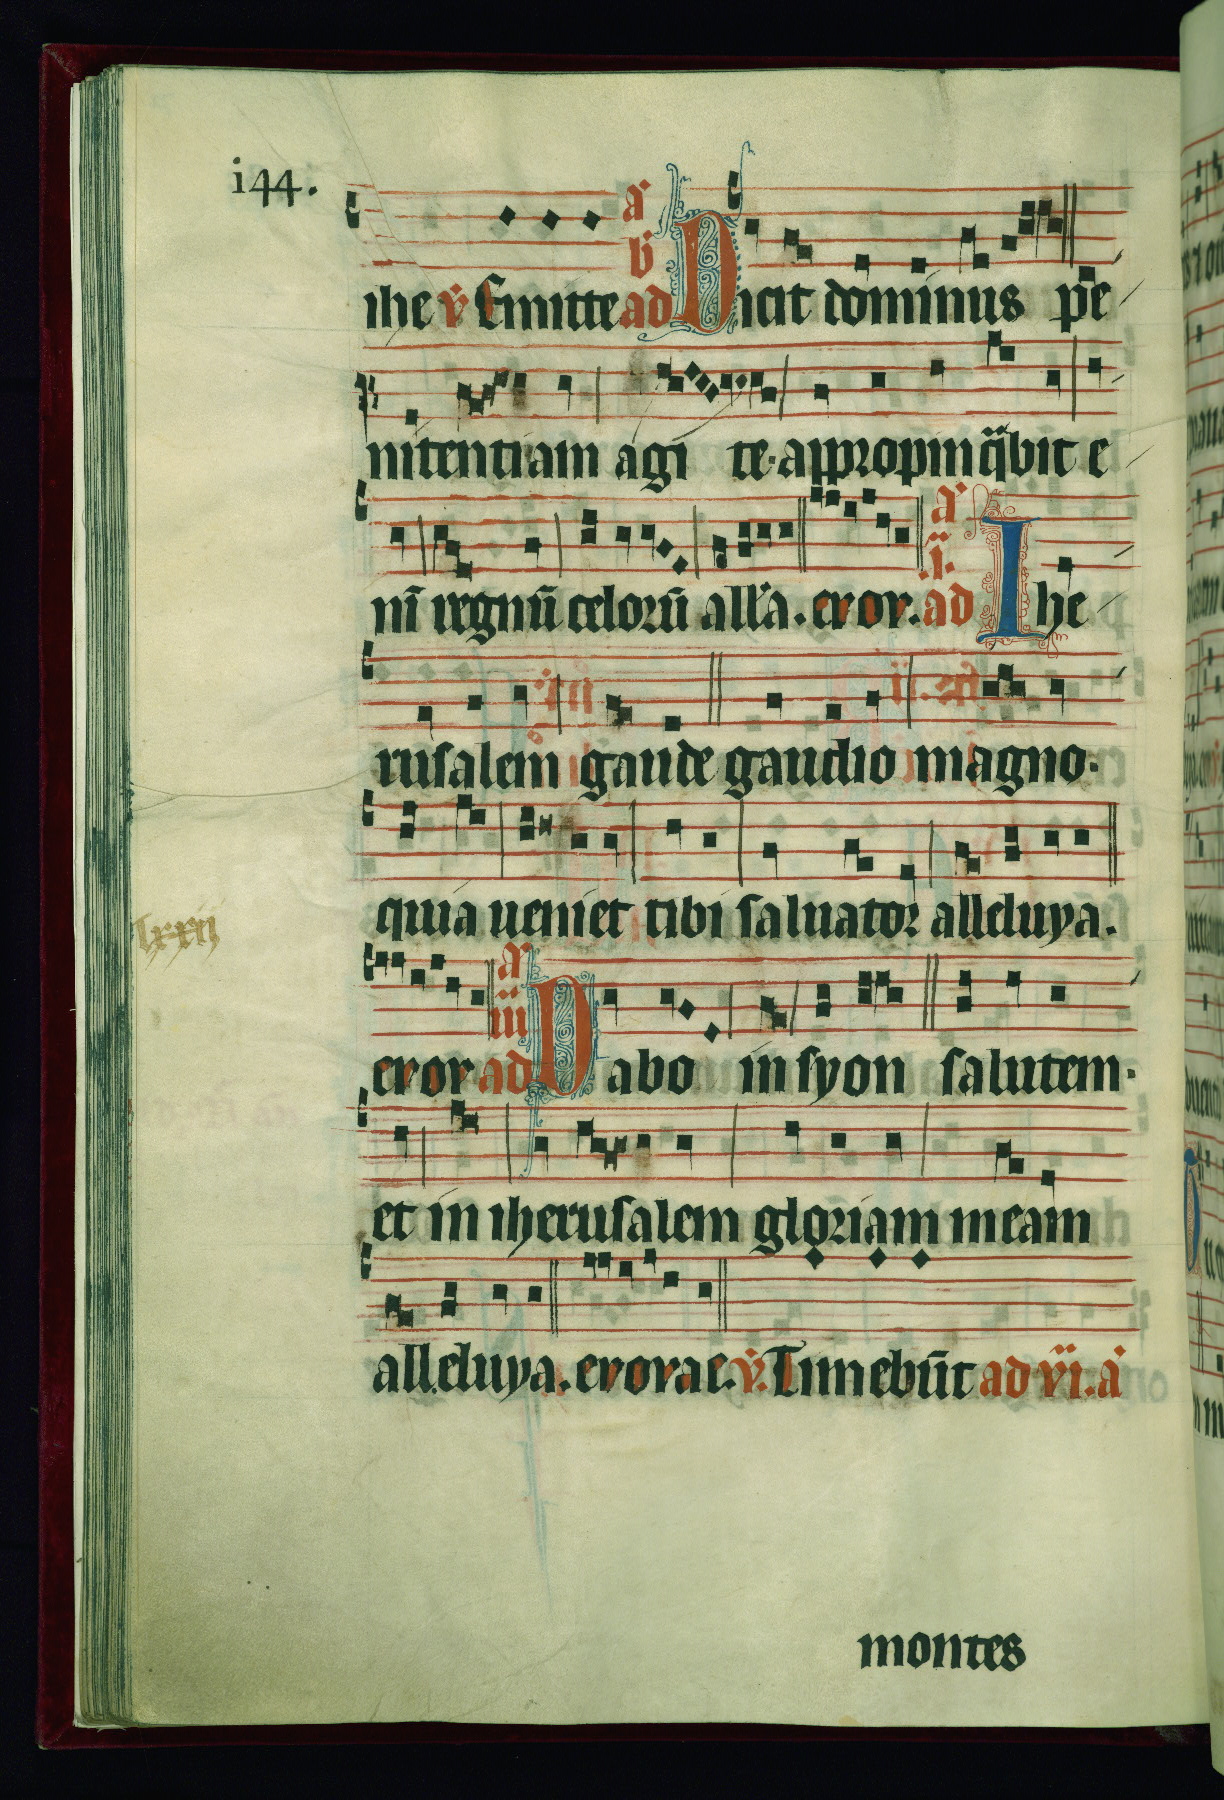 i44.
a
v
ihe v Emitte ad Dicit dominus pe
nitentiam agi te. appropinq̃bit e
a
.ii.
nī regnū celorū all'a. evov. ad Ihe
rusalem gaude gaudio magno.
quia ueniet tibi saluator alleluya.
lxxij
a
iii
evov ad Dabo in syon salutem.
et in iherusalem gloriam meam
alleluya. evovae. v̇. Timebūt ad vi. a
montes